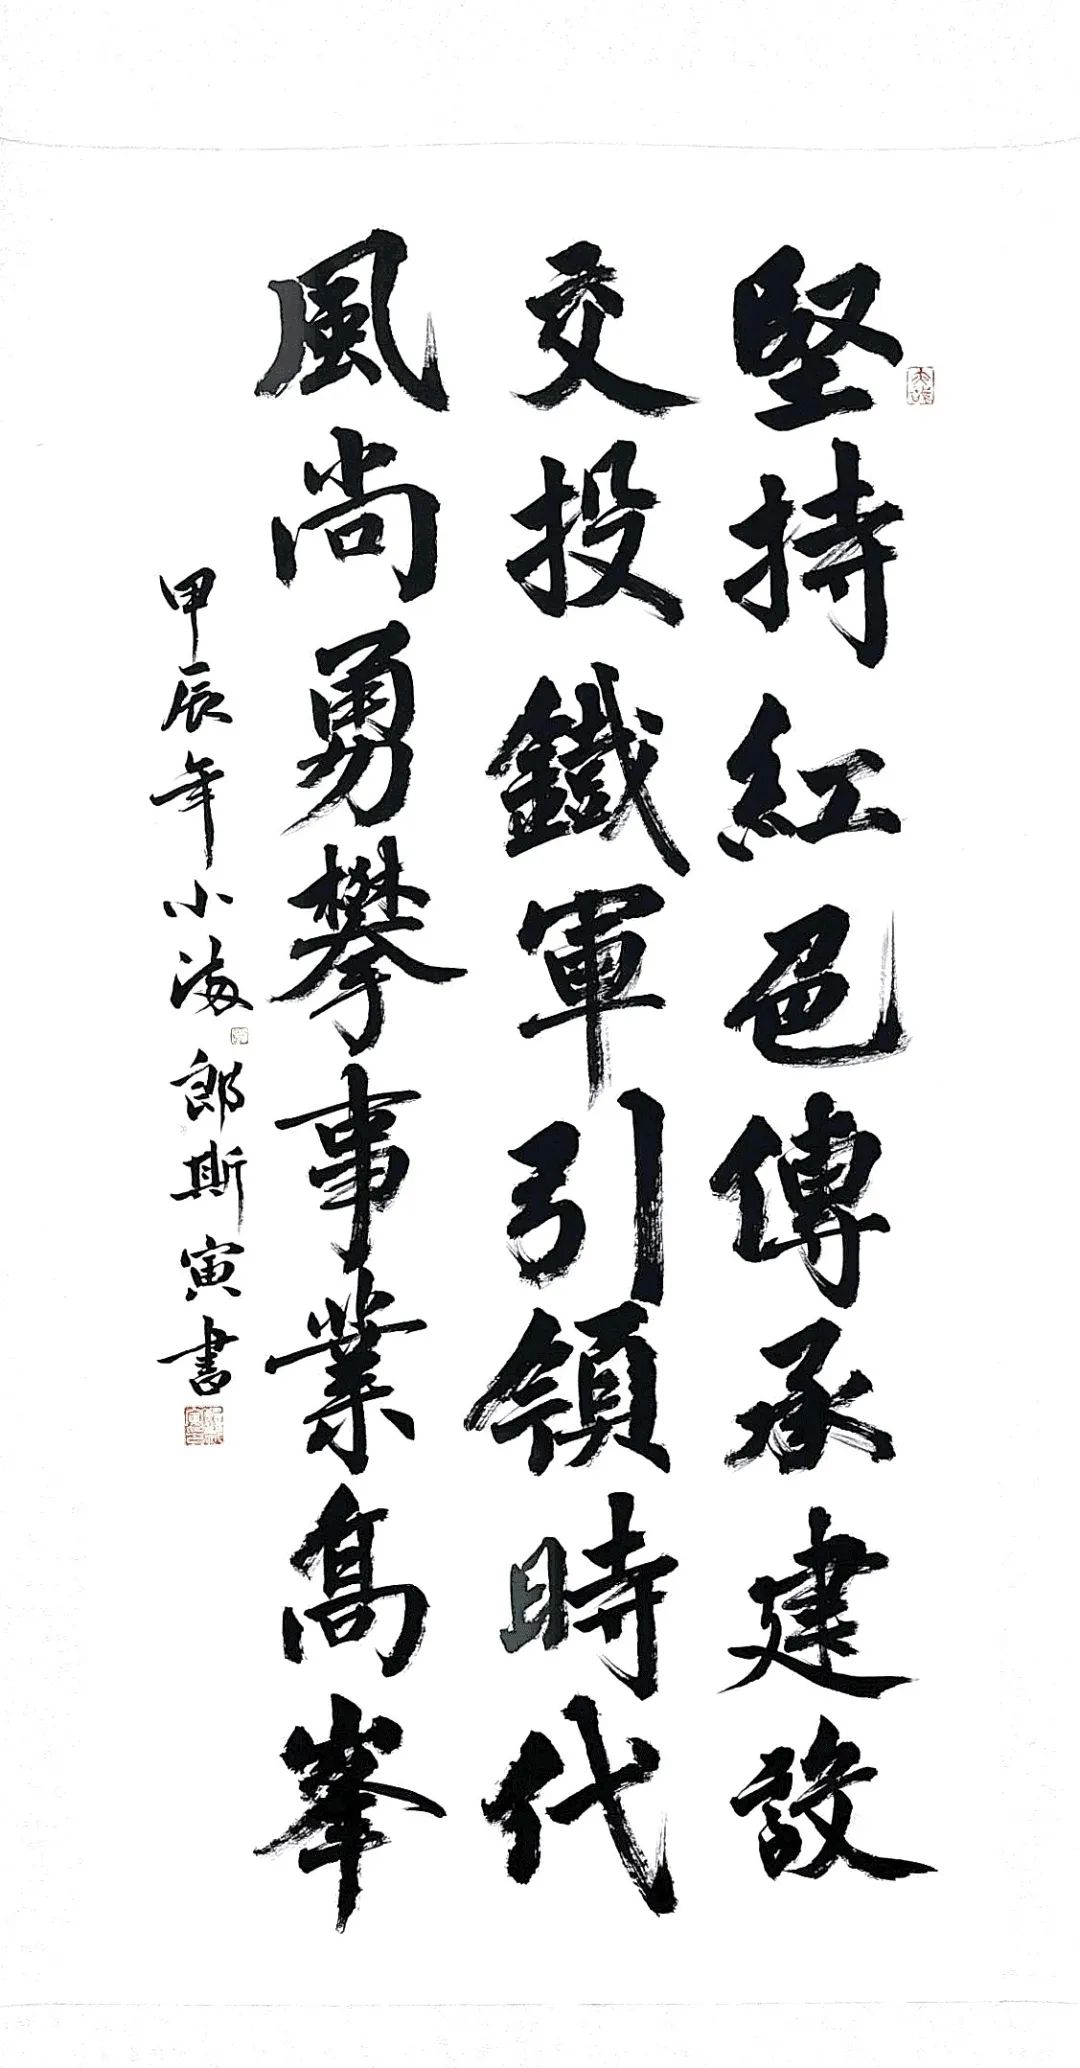 堅持紅色傳承建設
交投鐵軍引領時代
風尚勇攀事業高峯
甲辰年小滿郎斯寅書